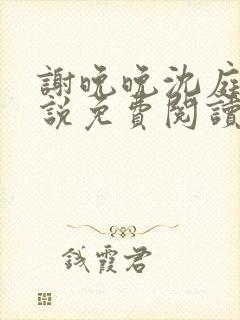 謝晚晚沈庭
說免費閱讀
錢霞君